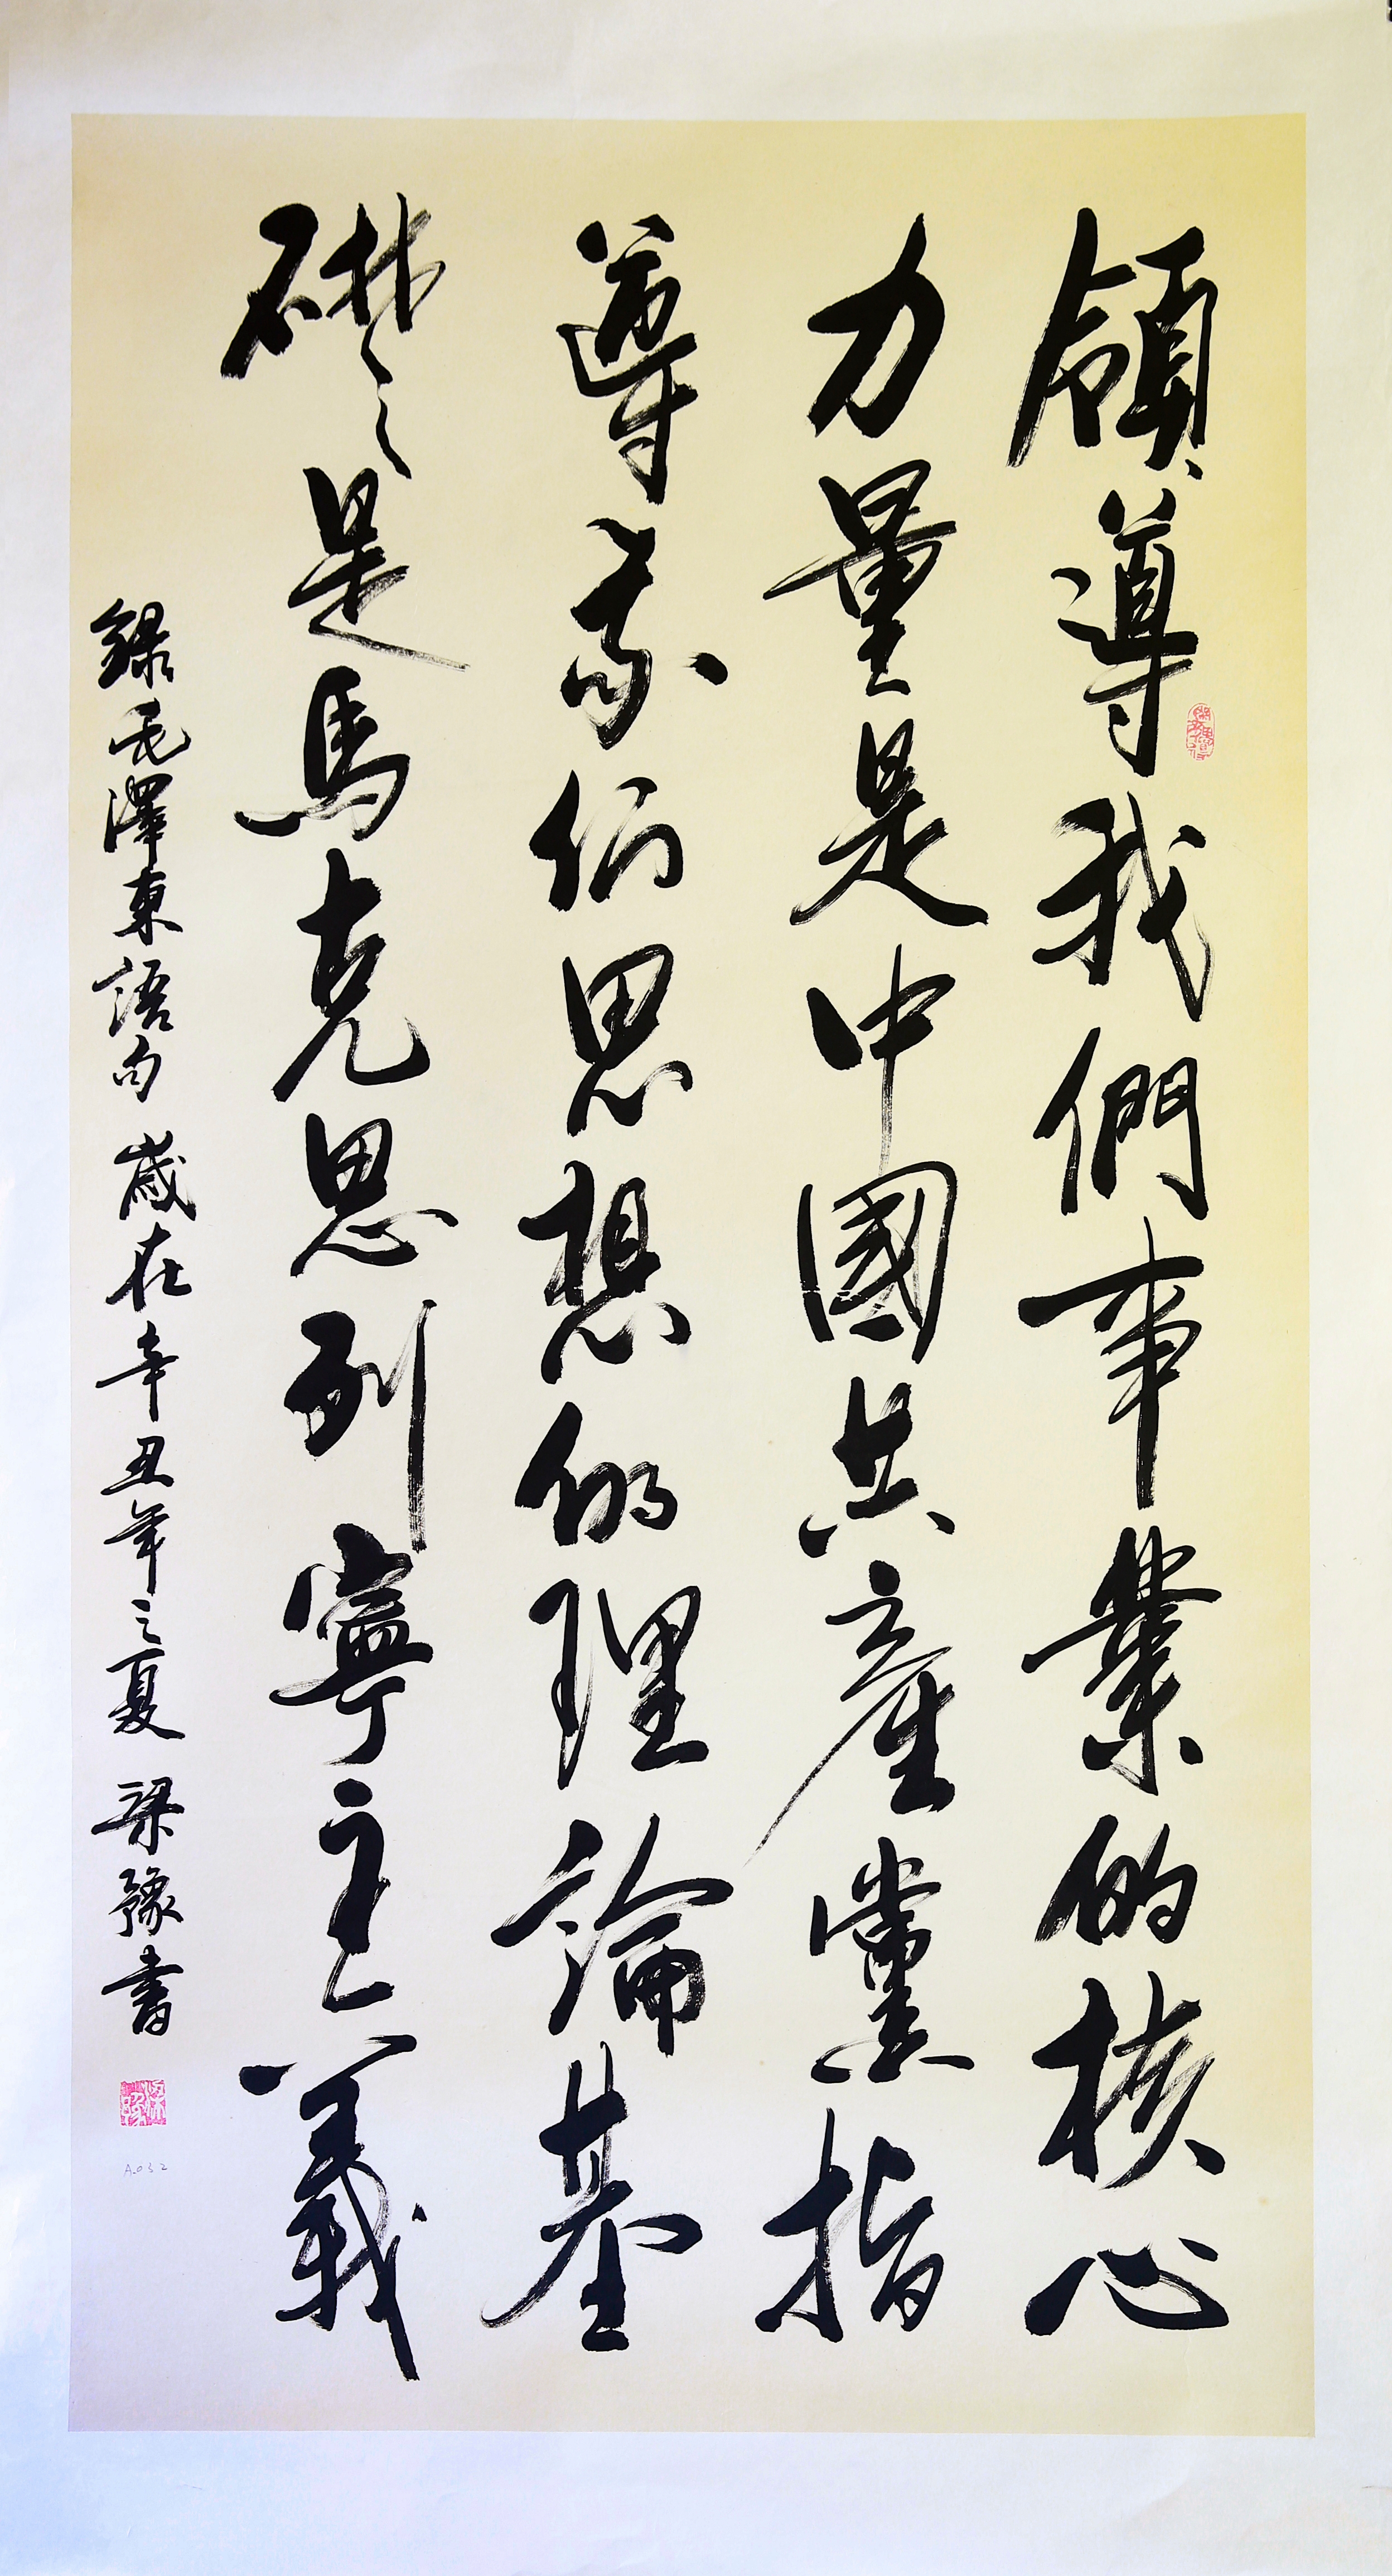 領導我們事業的核心
力量是中國共產黨指
導我们思想的理論基
礎是馬克思列寧主義
錄毛澤東語句 歲在辛丑年之夏 梁豫書
梁豫
A.032